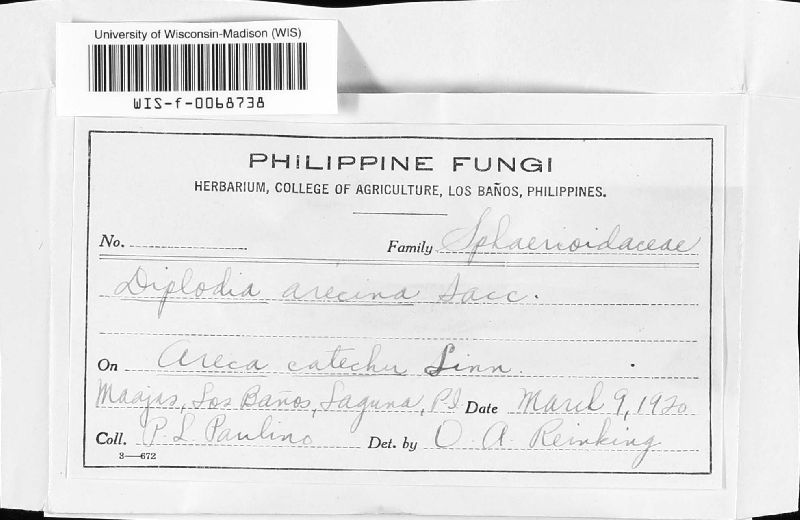 University of Wisconsin-Madison (WIS)
WIS-f-0068738
PHILIPPINE FUNGI
HERBARIUM, COLLEGE OF AGRICULTURE, LOS BAÑOS, PHILIPPINES.
No. Family Sphaerioidaceae
Diplodia arecina Sacc.
On Areca catechu Linn.
Maajas, Los Baños, Laguna, P.I Date March 9, 1920
Coll. P. L Paulino Det. by O. A. Reinking
3—672